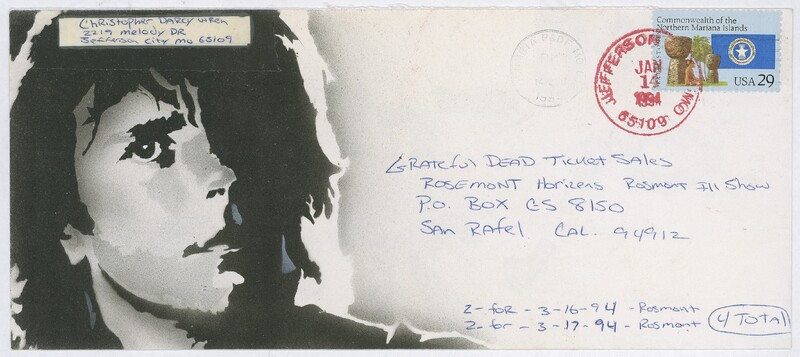 Christopher Darcy Uren
2219 Melody DR
Jefferson City Mo 65109
Commonwealth of the
Northern Mariana Islands
USA 29
JEFFERSON
MO
JAN
14
1994
65109
GRATEFUL DEAD TICKET SALES
ROSEMONT Horizens Rosmont Ill Show
P.O. BOX CS 8150
SAN RAFEL CAL. 94912
2-for-3-16-94-Rosmont
2-for-3-17-94-Rosmont
4 TOTAL